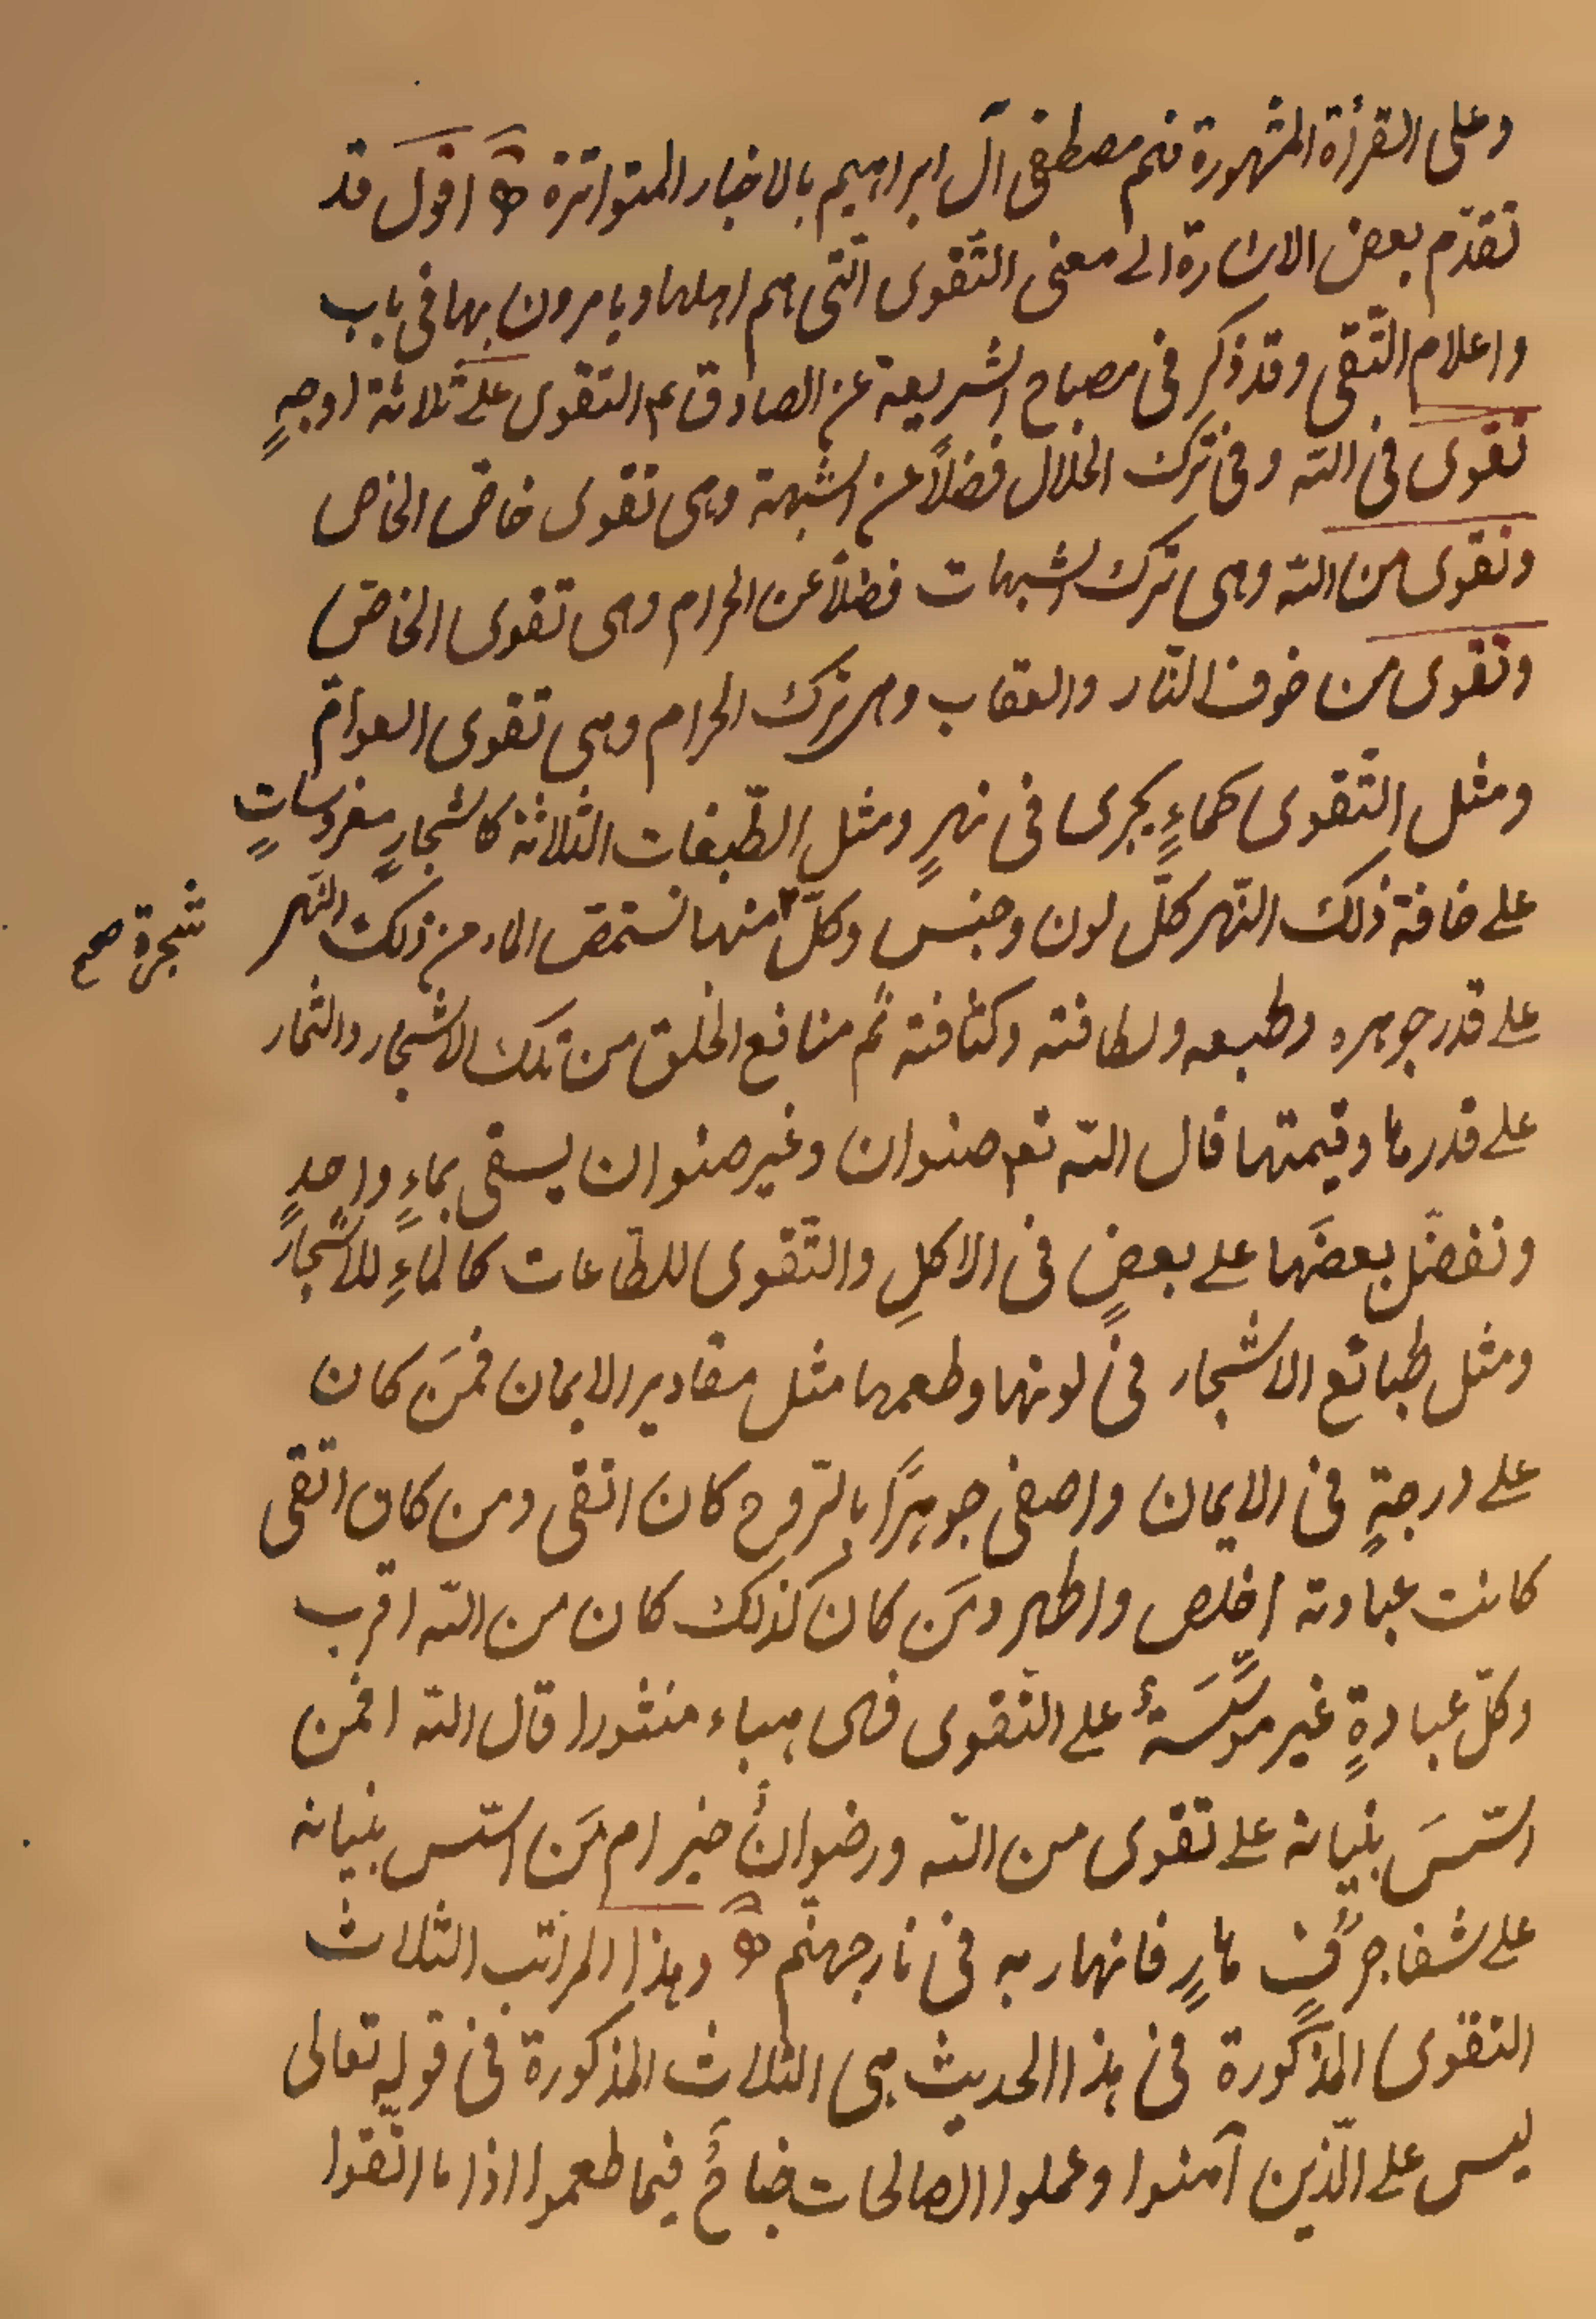 وعلى القرأة المشهورة فهم مصطفى آل ابراهيم بالاخبار المتواترة اقول قد
تقدّم بعض الاشارة الى معنى التّقوى الّتى هم اهلها ويامرون بها فى باب
واعلام التّقى وقد ذكر فى مصباح الشريعة عن الصادق ع التقوى على ثلاثة اوجهٍ
تقوى فى اللّه وفى ترك الحلال فضلاً عن الشبهة وهى تقوى خاصّ الخاص
وتقوى من اللّه وهى ترك الشبهات فضلاً عن الحرام وهى تقوى الخاصّ
وتقوى من خوف النّار والعقاب وهى ترك الحرام وهى تقوى العوامّ
ومثل التّقوى كماءٍ يجرى فى نهرٍ ومثل الطّبقات الثلاثة كاشجارٍ مغروساتٍ
على حافة ذلك النّهر كلّ لون وجنس وكلّ منها تستمصّ الماء من ذلك النّهر
شجرة صح
على قدر جوهره وطبعه ولطافته وكثافته ثم منافع الخلق من تلك الاشجار والثمار
على قدرها وقيمتها قال اللّه تع صنوان وغير صنوان يسقى بماءٍ واحدٍ
ونفضّل بعضَها على بعضٍ فى الاكلِ والتّقوى للطّاعات كالماءِ للاشجار
ومثل طبائع الاشجار فى لونها وطعمها مثل مقادير الايمان فمَن كان
على درجةٍ فى الايمان واصفى جوهرًا بالرّوح كان اتقى ومن كان اتقى
كانت عبادته اخلص واطهر ومَن كان كذلك كان من اللّه اقرب
وكلّ عبادةٍ غير مؤسّسَة على التّقوى فهى هباء منثورا قال اللّه افمن
اسّسَ بنيانه على تقوى من اللّه ورضوانٌ خير ام مَن اسّس بنيانه
على شفا جرُفٍ هارٍ فانهار به فى نار جهنّم وهذا المراتب الثلاث
التقوى المذكورة فى هذا الحديث هى الثلاث المذكورة فى قوله تعالى
ليس على الّذين آمنوا وعملوا الصالحات جناحٌ فيما طعموا اذا ما اتّقوا